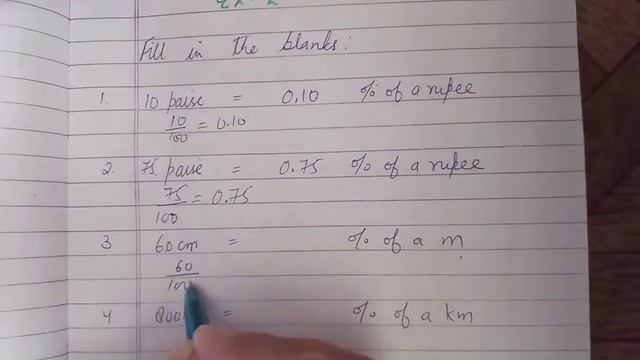 Fill in the blanks:
1. 10 paise = 0.10 % of a rupee
10/100 = 0.10
2. 75 paise = 0.75 % of a rupee
75/100 = 0.75
3 60 cm = % of a m
60/10
4 = % of a km